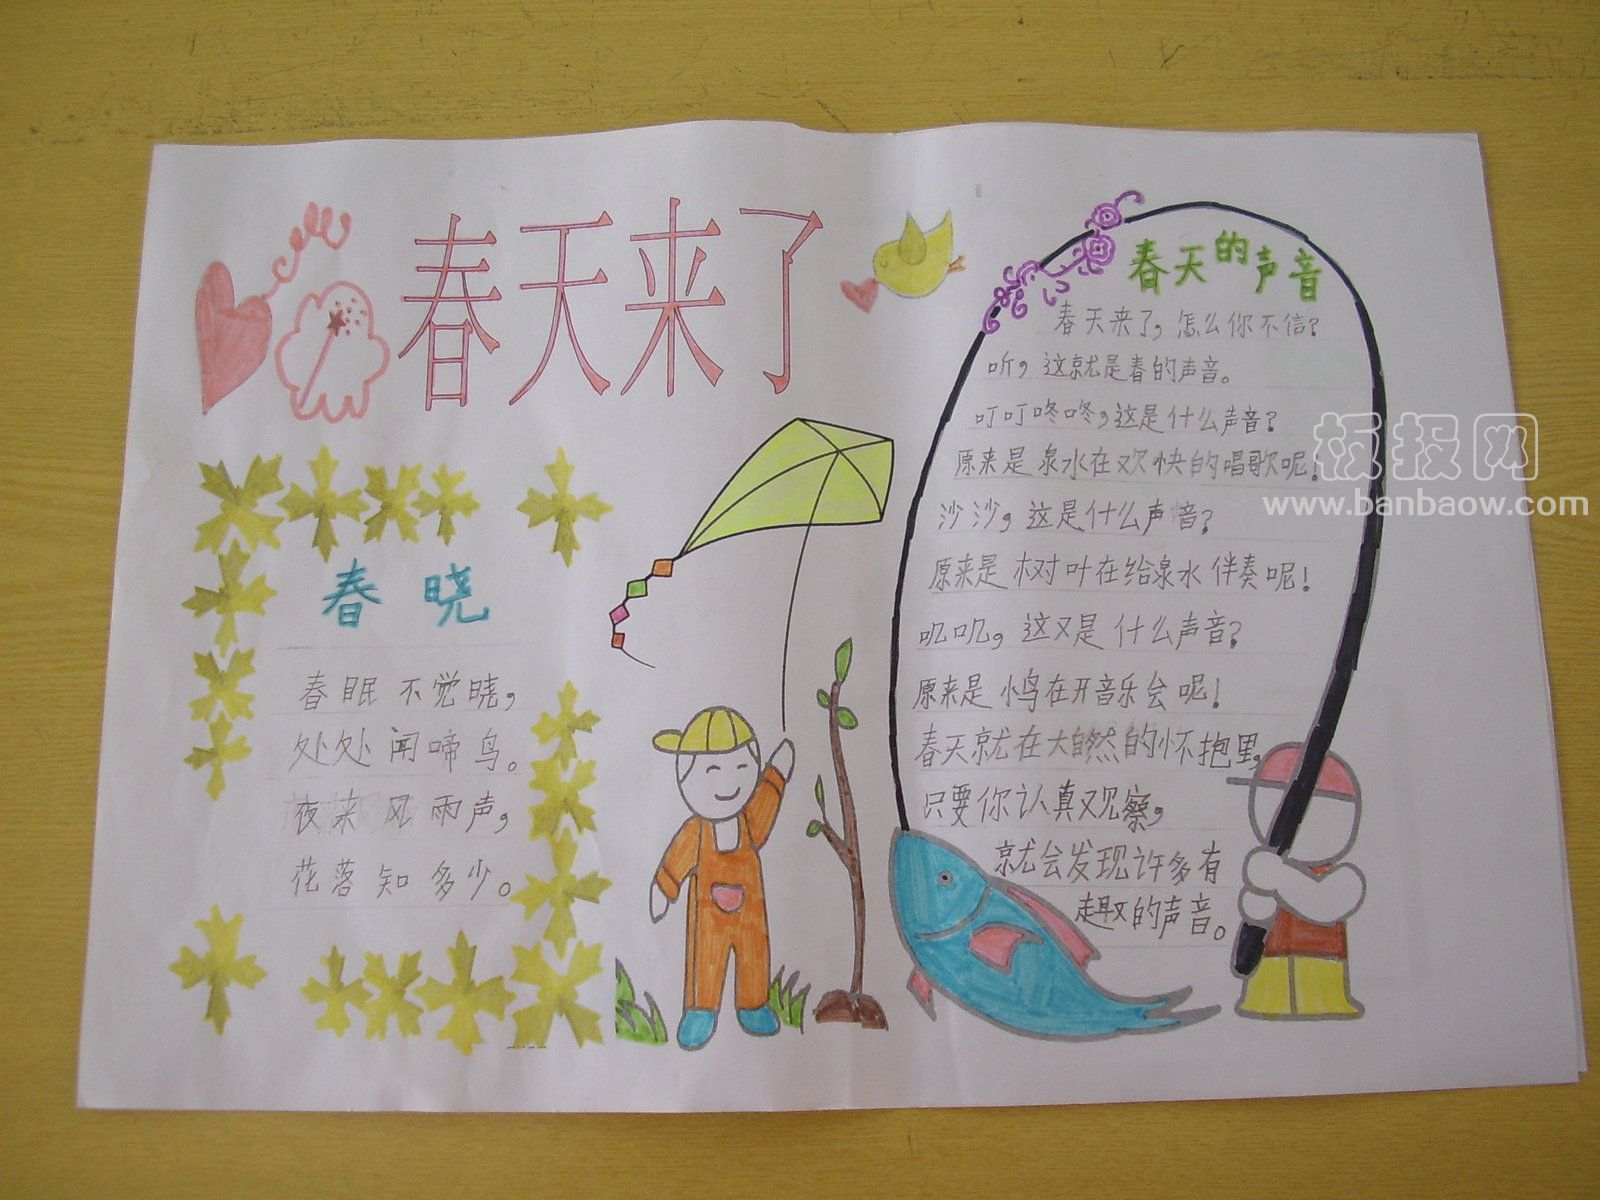 春天来了
春晓
春眠不觉晓，
处处闻啼鸟。
夜来风雨声，
花落知多少。
春天的声音
春天来了，怎么你不信？
听，这就是春的声音。
叮叮咚咚，这是什么声音？
原来是泉水在欢快的唱歌呢！
沙沙，这是什么声音？
原来是树叶在给泉水伴奏呢！
叽叽，这又是什么声音？
原来是小鸟在开音乐会呢！
春天就在大自然的怀抱里，
只要你认真观察，
就会发现许多有
趣的声音。
板报网
www.banbaow.com